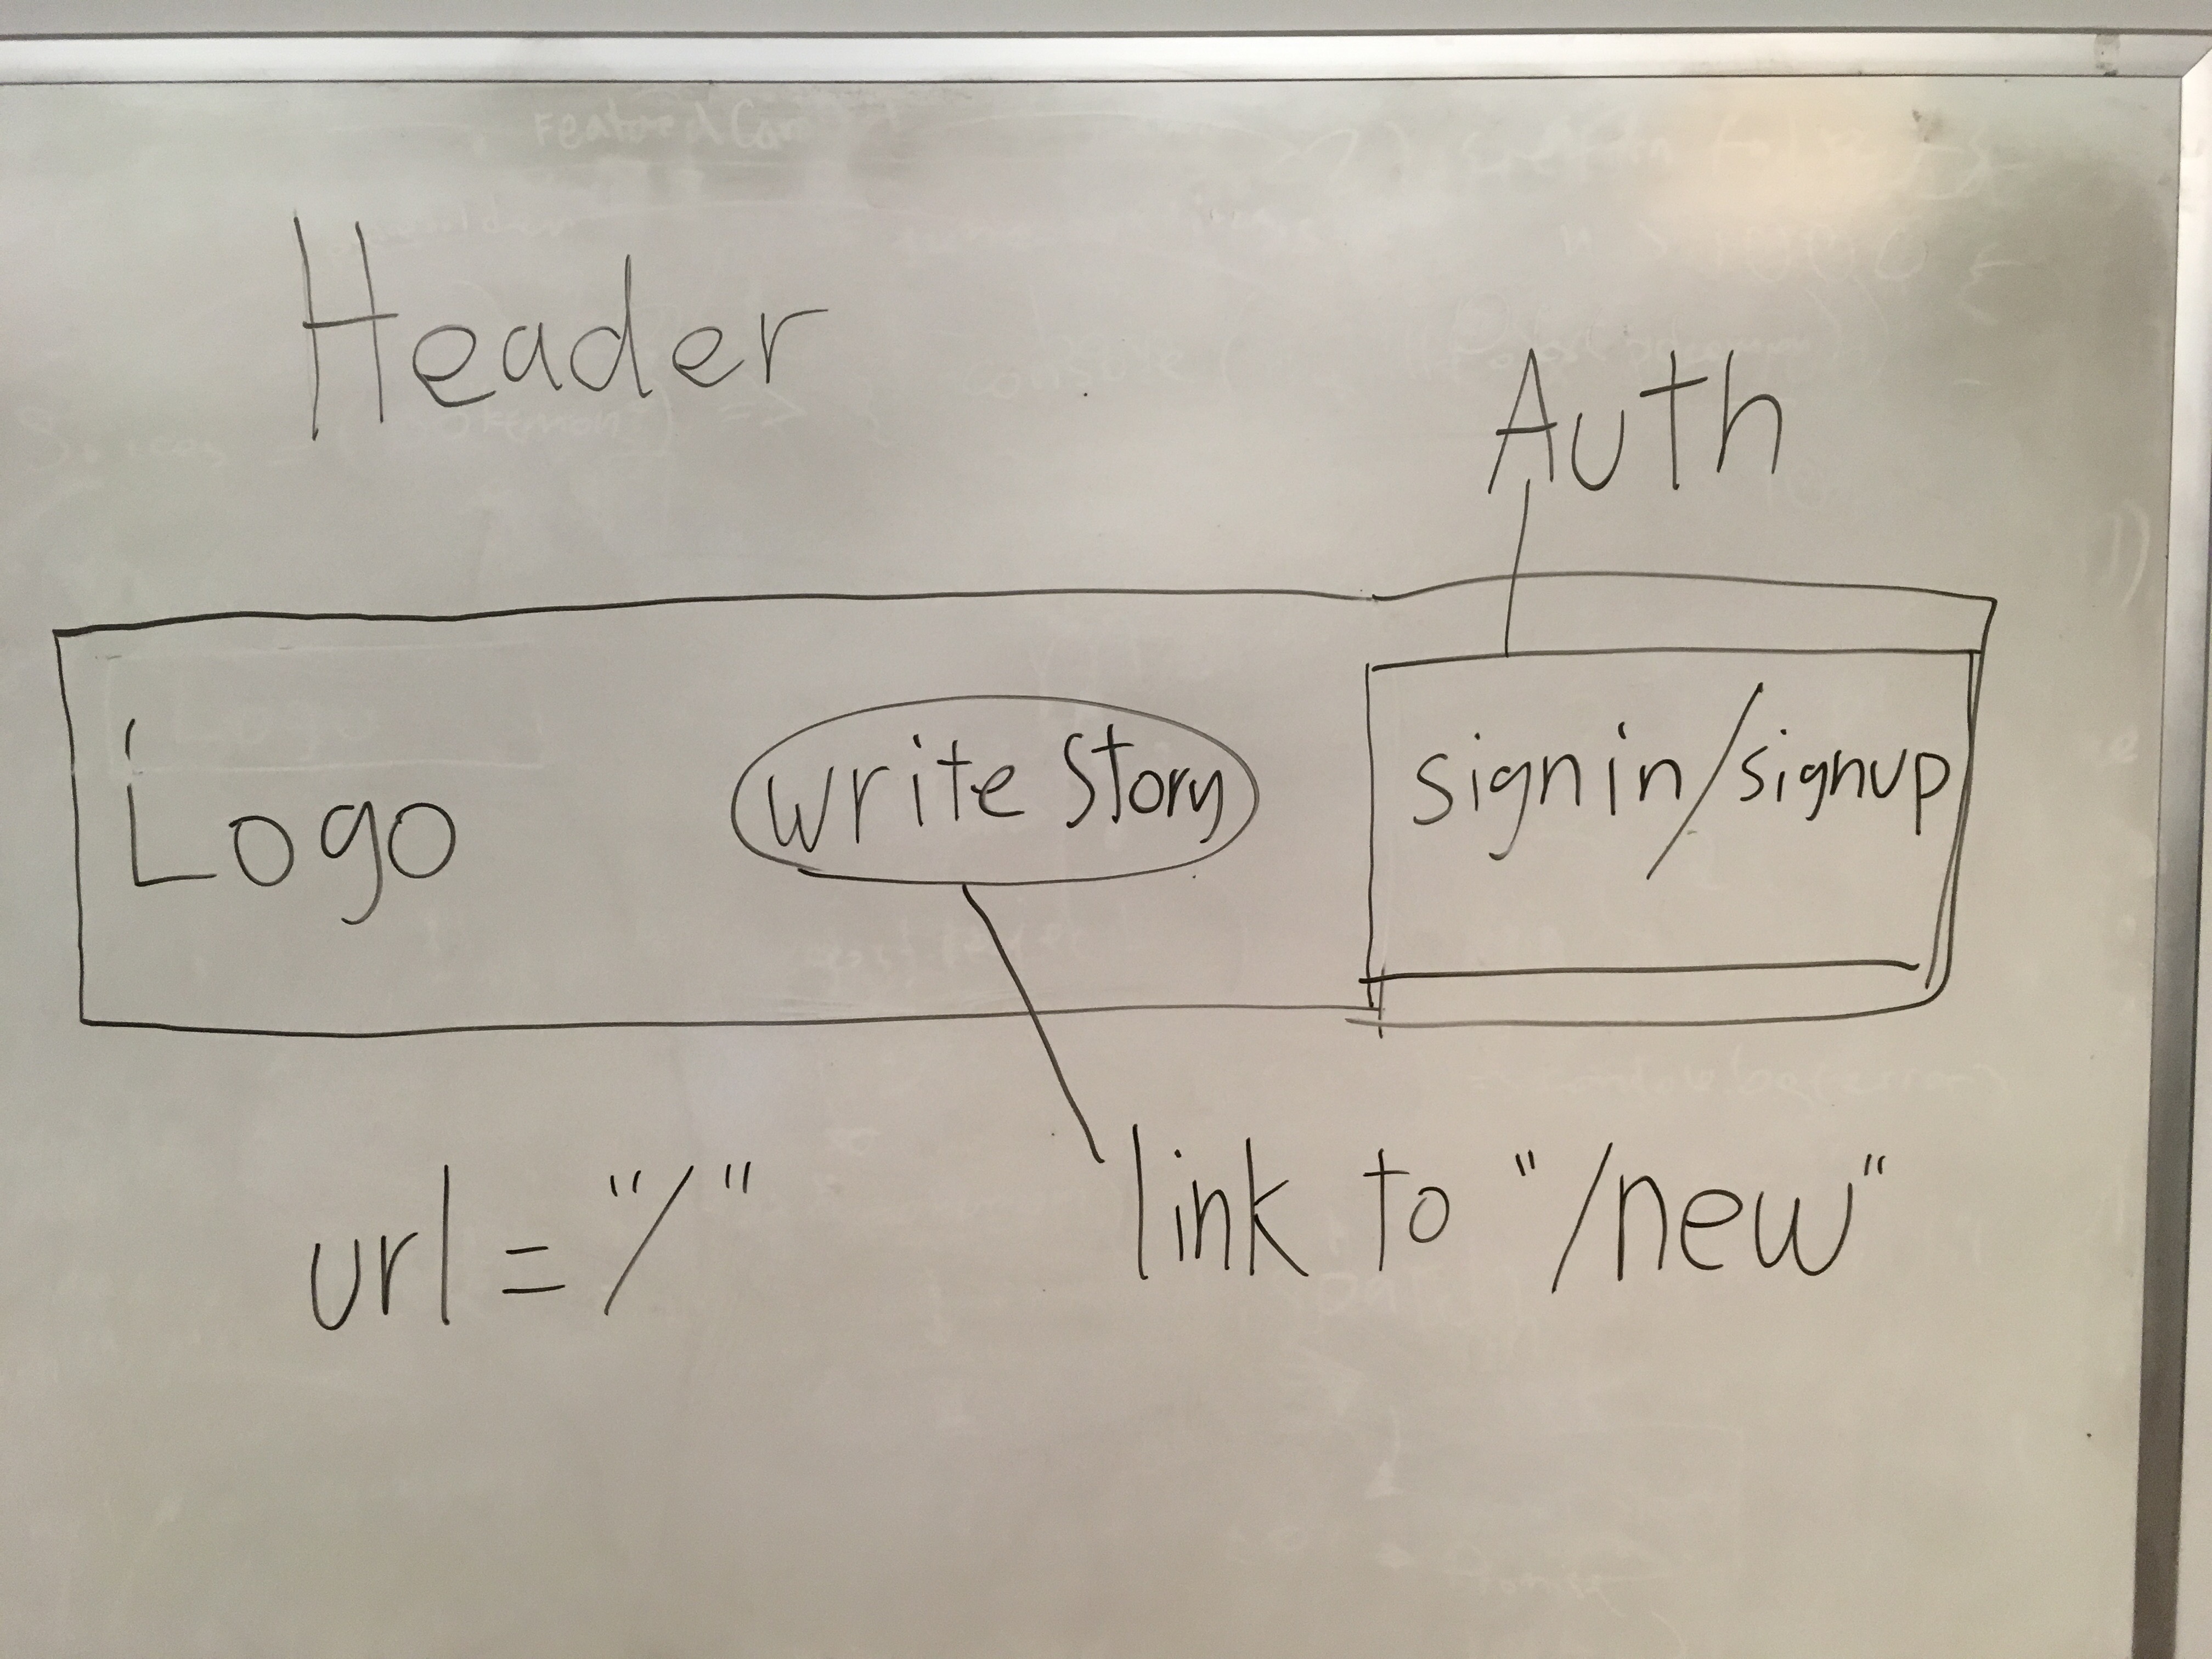 Header
Auth
Logo
write Story
signin/signup
url = "/"
link to "/new"